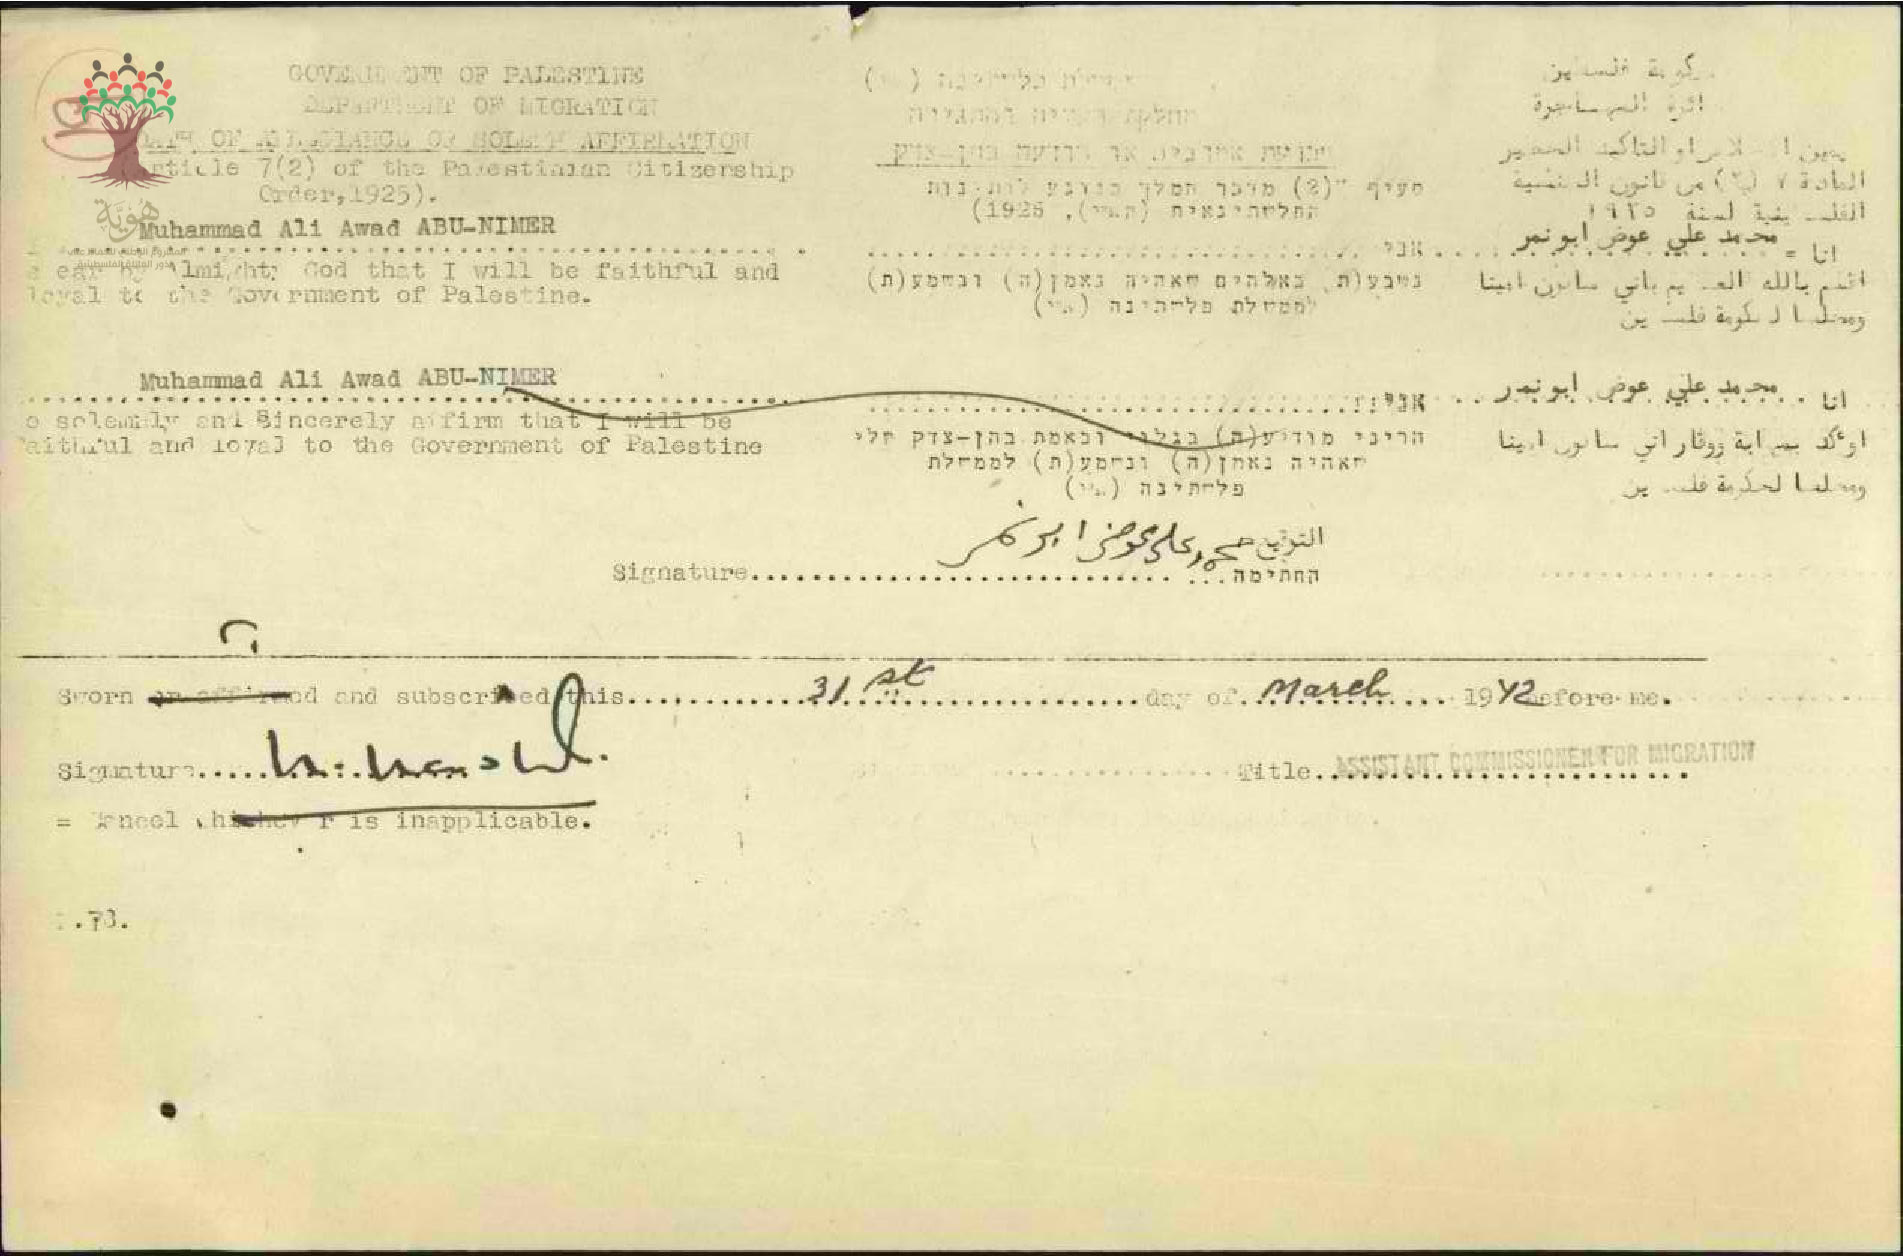 GOVERNMENT OF PALESTINE
DEPARTMENT OF MIGRATION
OATH OF ALLEGIANCE OF SOLEMN AFFIRMATION
Article 7(2) of the Palestinian Citizenship
Order,1925).
هُوِيَّة
Muhammad Ali Awad ABU-NIMER
swear by Almighty God that I will be faithful and
loyal to the Government of Palestine.
Muhammad Ali Awad ABU-NIMER
do solemnly and Sincerely affirm that I will be
faithful and loyal to the Government of Palestine
ממשלת פלשתינה (א״י)
סעיף 7(2) מדבר המלך בנוגע לנתינות
הפלשתינאית (הא״י), 1925)
אני
נשבע(ת) באלהים שאהיה נאמן(ה) ונשמע(ת)
לממשלת פלשתינה (א״י)
אני
הריני מודיע(ה) בגלוי ובאמת בהן-צדק שלי
שאהיה נאמן(ה) ונשמע(ת) לממשלת
פלשתינה (א״י)
حكومة فلسطين
دائرة المهاجرة
المادة ٧ (٢) من قانون الجنسية
الفلسطينية لسنة ١٩٢٥
انا = محمد علي عوض ابو نمر
اقسم بالله العظيم باني ساكون امينا
ومخلصا لحكومة فلسطين
انا محمد علي عوض ابو نمر
اوكد بمهابة ووقار اني ساكون امينا
ومخلصا لحكومة فلسطين
التوقيع محمد علي عوض ابو نمر
Signature החתימה
Sworn or affirmed and subscribed this 31st day of March 1942 before me.
Signature Title ASSISTANT COMMISSIONER FOR MIGRATION
= Cancel whichever is inapplicable.
.78.